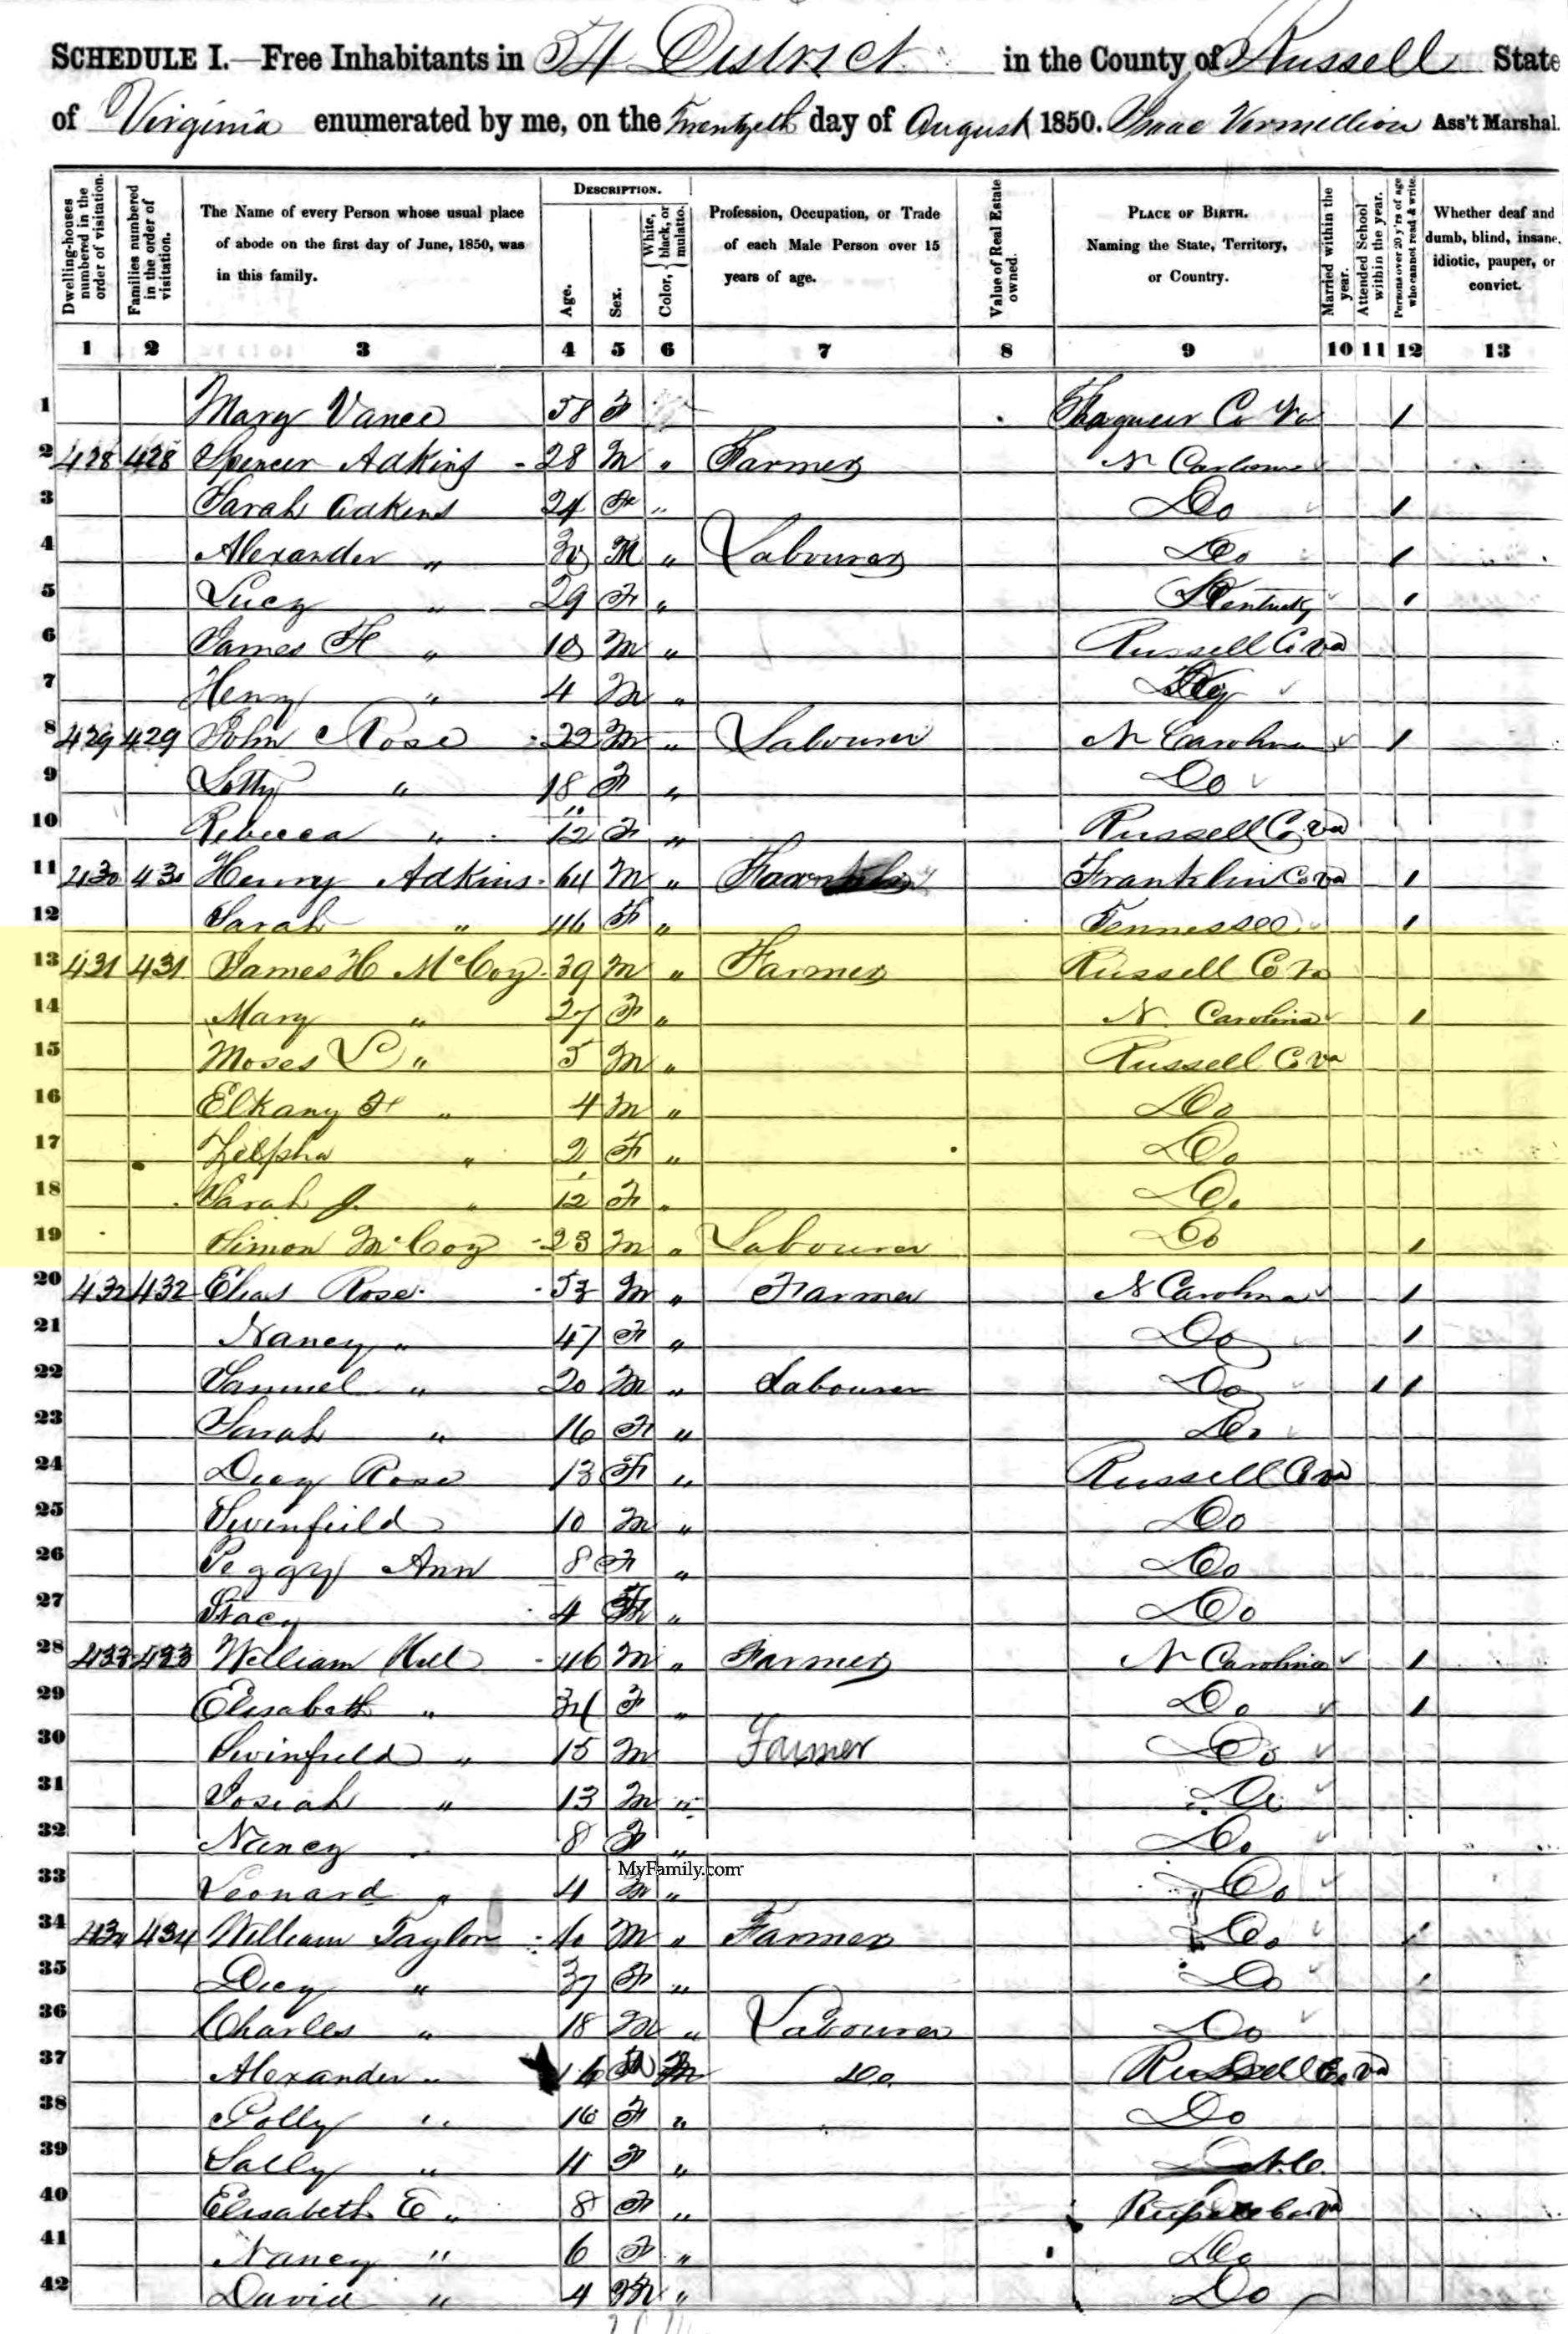 SCHEDULE I.—Free Inhabitants in 54 District in the County of Russell State
of Virginia enumerated by me, on the Twentyeth day of August 1850. Isaac Vermillion Ass't Marshal.
Dwelling-houses numbered in the order of visitation.
Families numbered in the order of visitation.
The Name of every Person whose usual place of abode on the first day of June, 1850, was in this family.
Description.
Age.
Sex.
Color, { White, black, or mulatto.
Profession, Occupation, or Trade of each Male Person over 15 years of age.
Value of Real Estate owned.
Place of Birth. Naming the State, Territory, or Country.
Married within the year.
Attended School within the year.
Persons over 20 y'rs of age who cannot read & write.
Whether deaf and dumb, blind, insane, idiotic, pauper, or convict.
1 2 3 4 5 6 7 8 9 10 11 12 13
1 Mary Vance 58 F Co Va /
2 428 428 Spencer Adkins 28 M " Farmer N
3 Sarah Adkins 24 F " Do /
4 Alexander " 30 M " Labourer Do /
5 Lucy " 29 F " Kentucky /
6 James H " 10 M " Russell Co Va
7 Henry " 4 M "
8 429 429 John Rose 22 M " Labourer N Carolina /
9 Lotty " 18 F " Do
10 Rebecca " 12 F " Russell Co Va
11 430 430 Henry Adkins 64 M " Franklin Co Va /
12 Sarah " 46 F " Tennessee /
13 431 431 James H McCoy 39 M " Farmer Russell Co Va
14 Mary " 27 F " N. Carolina /
15 Moses L " 5 M " Russell Co Va
16 Elkany H " 4 M " Do
17 Zelpha " 2 F " Do
18 Sarah J. " 12 F " Do
19 Simon McCoy 23 M " Labourer Do /
20 432 432 Elias Rose 53 M " Farmer N Carolina /
21 Nancy " 47 F " Do /
22 Samuel " 20 M " Labourer Do / /
23 Sarah " 16 F " Do
24 Dicy Rose 13 F " Russell Co Va
25 Swinfield 10 M " Do
26 Peggy Ann 8 F " Do
27 Stacy 4 " Do
28 433 433 William Hill 46 M " Farmer N Carolina /
29 Elisabeth " 34 F " Do /
30 Swinfield " 15 M Farmer Do
31 Josiah " 13 M " Do
32 Nancy 8 F " Do
MyFamily.com
33 Leonard " 4 M " Do
34 434 434 William Taylor 40 M " Farmer Do /
35 Dicy " 37 F " Do /
36 Charles " 18 M " Labourer Do
37 Alexander " 16 Do Russell Co Va
38 Polly " 16 F " Do
39 Sally " 11 F " N.C.
40 Elisabeth E " 8 F "
41 Nancy " 6 F " Do
42 David " 4 M " Do